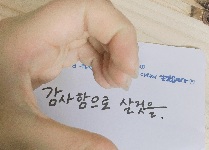 감사함으로 살것을.